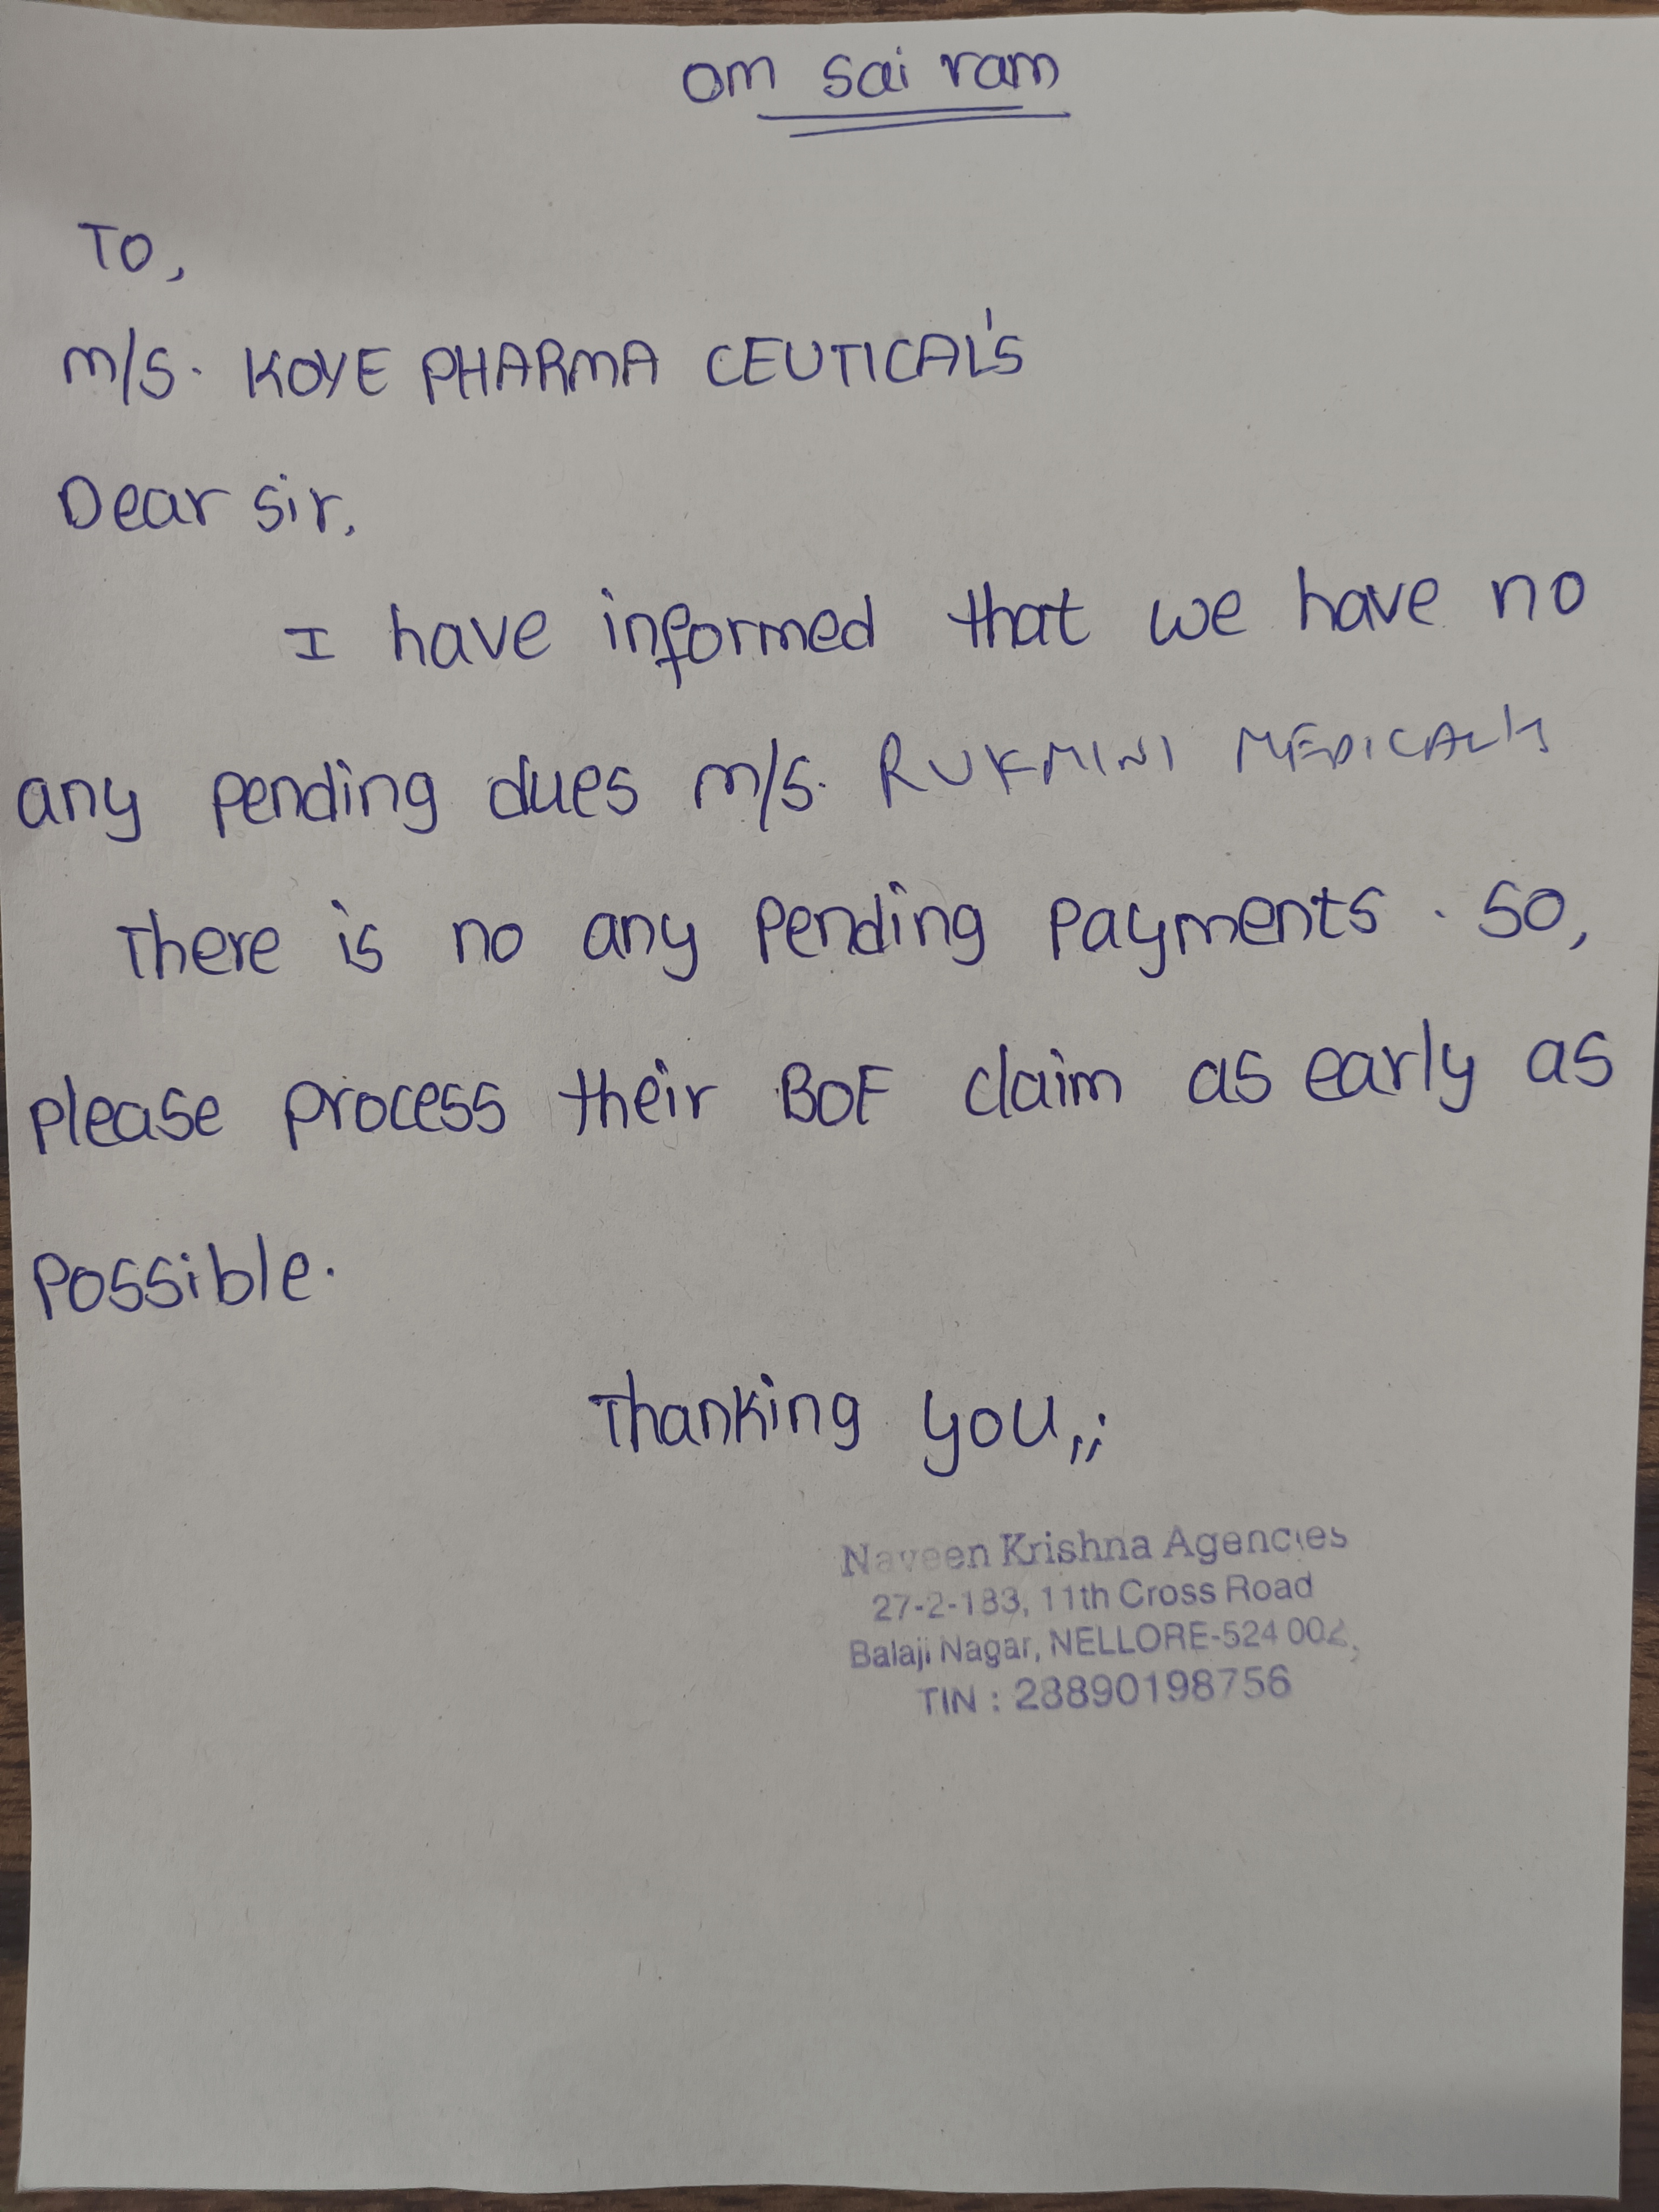 om sai ram
TO,
M/S. KOYE PHARMA CEUTICAL'S
Dear sir,
I have informed that we have no
any pending dues m/s. RUKMINI MEDICALS
There is no any pending payments. So,
please process their BOE claim as early as
possible.
Thanking you,,;
Naveen Krishna Agencies
27-2-183, 11th Cross Road
Balaji Nagar, NELLORE-524 002,
TIN : 28890198756